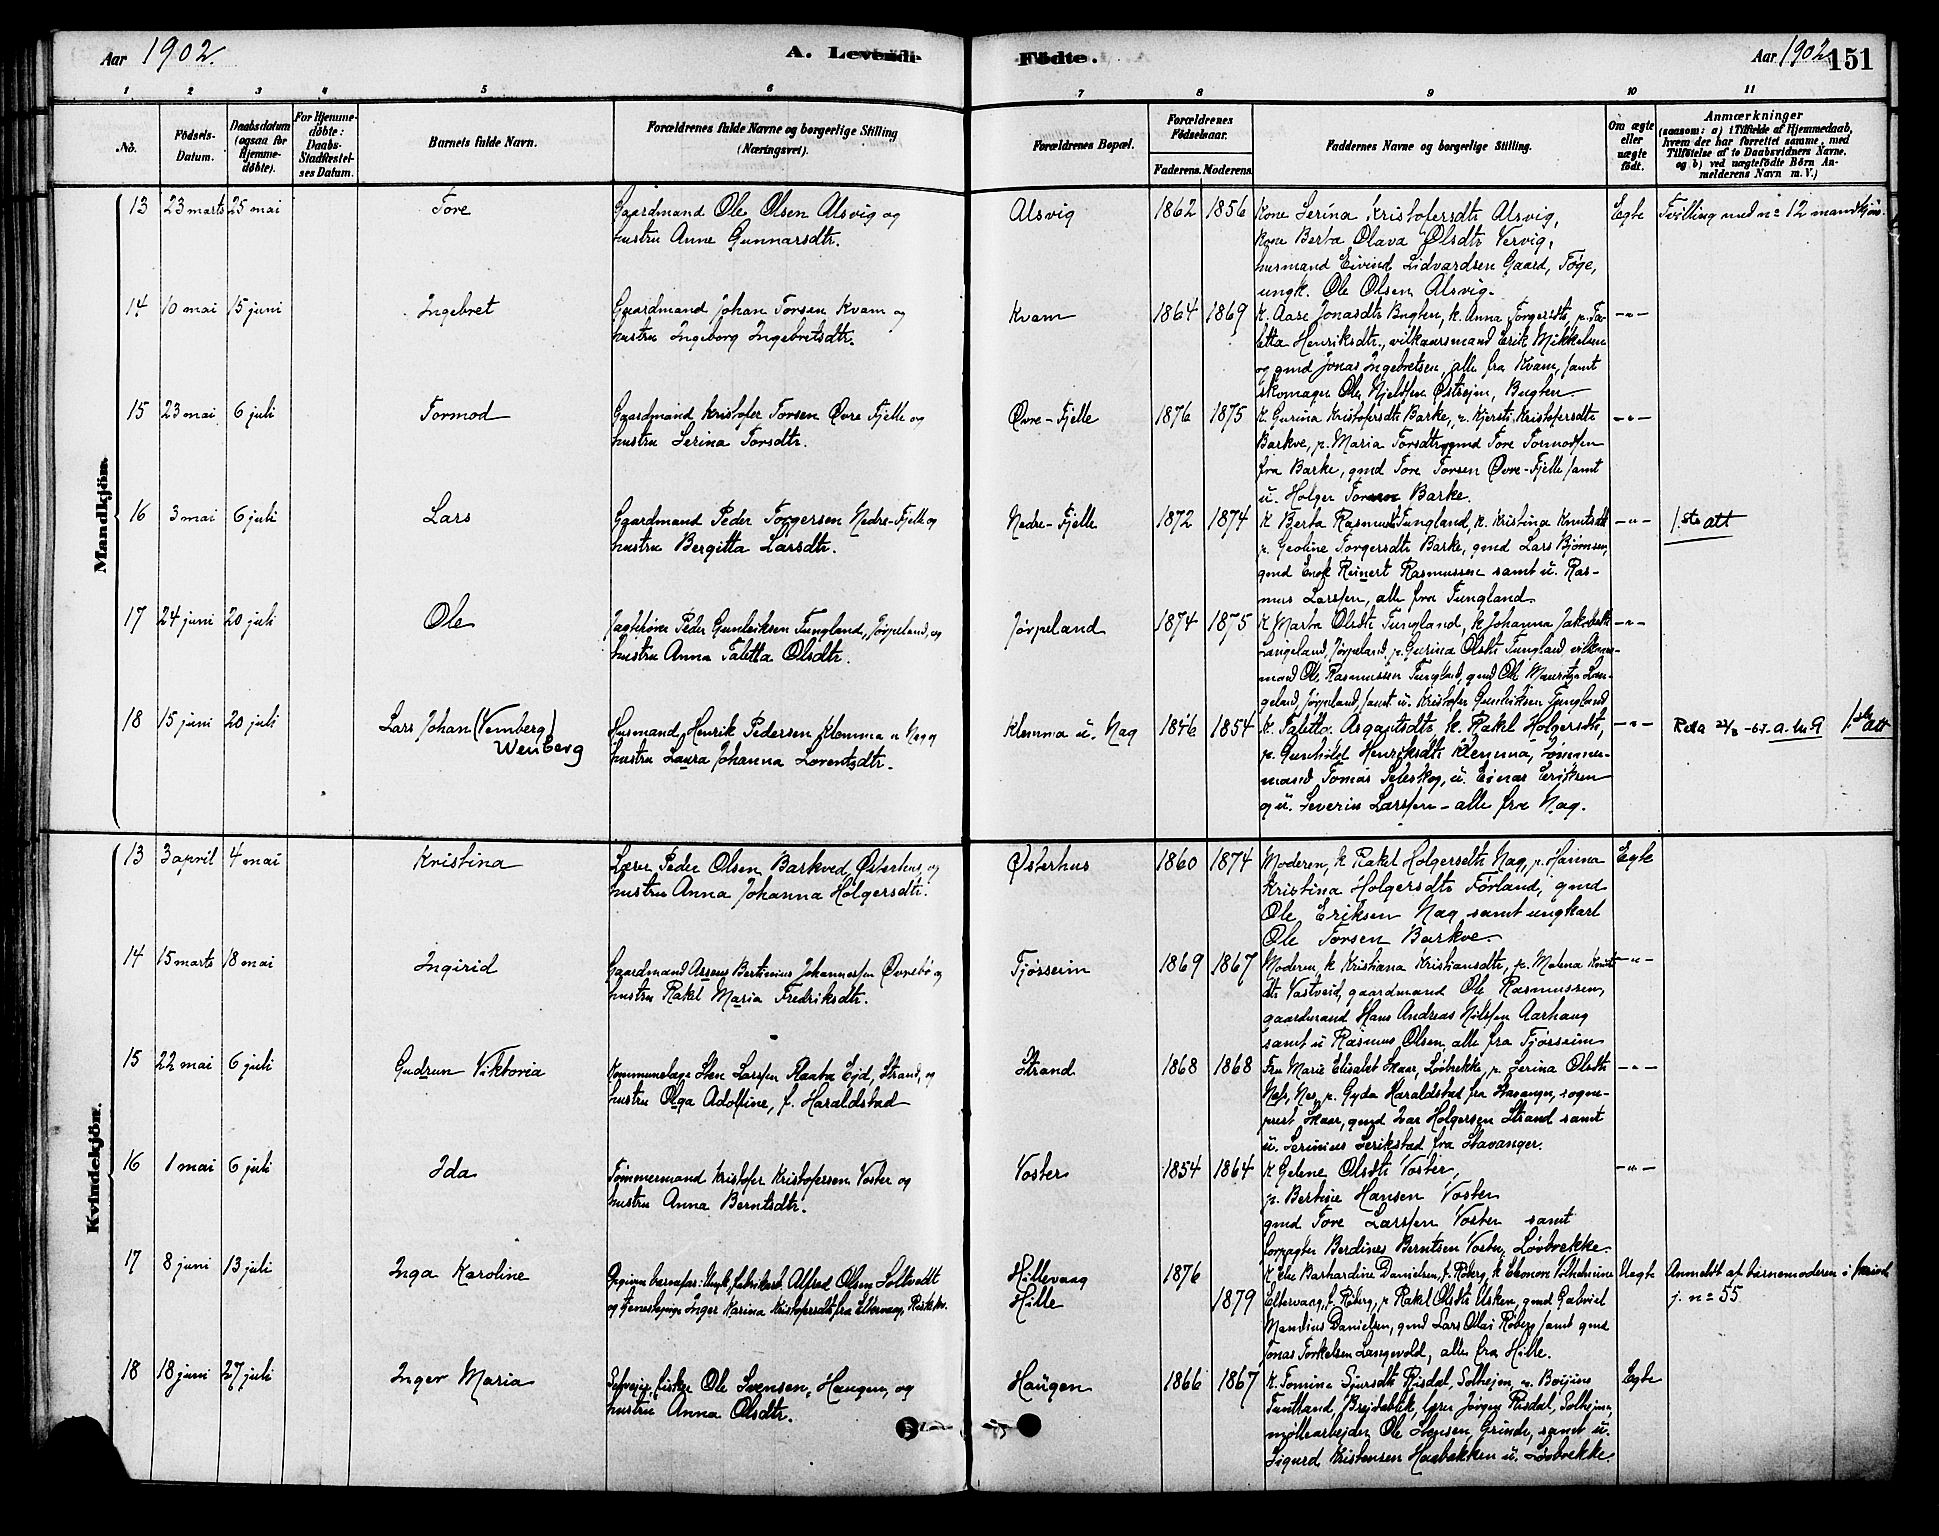 Aar 1902. A. Levende Fødte. Aar 1902 151
1 2 3 4 5 6 7 8 9 10 11
No. Fødsels-Datum. Daabsdatum (ogsaa for Hjemmedøbte). For Hjemmedøbte: Daabs-Stadfæstelses Datum. Barnets fulde Navn. Forældrenes fulde Navne og borgerlige Stilling (Næringsvei). Forældrenes Bopæl. Forældrenes Fødselsaar. Faderens. Moderens. Faddernes Navne og borgerlige Stilling. Om ægte eller uægte født. Anmærkninger (saasom: a) i Tilfælde af Hjemmedaab, hvem der har forrettet samme, med Tilføielse af to Daabsvidners Navne, og b) ved uægtefødte Børn Anmelderens Navn m. V.)
Mandkjön.
13 23 marts 25 mai Tore Gaardmand Ole Olsen Alsvig og Alsvig 1862 1856 Kone Serina Kristofersdtr Alsvig, Egte Tvilling med no 12 mandkjøn.
hustru Anne Gunnarsdtr. Kone Berta Olava Olsdtr Vervig,
husmand Eivind Lidvardsen Gaard, Føge,
ungk. Ole Olsen Alsvig.
14 10 mai 15 juni Ingebret Gaardmand Johan Torsen Kvam og Kvam 1864 1869 K. Aase Jonasdtr Bugten, k. Anna Torgersdtr, p. Ta- -"-
hustru Ingeborg Ingebretsdtr. letta Henriksdtr., vilkaarsmand Erik Mikkelsen
og gmd Jonas Ingebretsen, alle fra Kvam, samt
skomager Ole Njelssen Østreim, Bugten
15 23 mai 6 juli Tormod Gaardmand Kristofer Torsen Øvre Fjelle og Øvre-Fjelle 1876 1875 K. Gurina Kristofersdtr Barke, p. Kjersti Kristofersdtr -"-
hustru Serina Torsdtr. Barkve, p. Maria Torsdtr, gmd Tore Tormodsen
fra Barke, gmd Tore Torsen Øvre-Fjelle samt
u. Holger Torsen Barke.
16 3 mai 6 juli Lars Gaardmand Peder Torgersen Nedre-Fjelle og Nedre-Fjelle 1872 1874 K Berta Rasmusdtr Tungland, k. Kristina Knutsdtr -"- 1ste att
hustru Bergitta Larsdtr. p. Geoline Torgersdtr Barke, gmd Lars Bjørnsen,
gmd Enok Reinert Rasmussen samt u. Ras-
mus Larssen, alle fra Tungland
17 24 juni 20 juli Ole Jagtfører Peder Gunleiksen Tungland, Jørpeland, og Jørpeland 1874 1875 K Marta Olsdtr Tungland, k Johanna Jakobsdtr -"-
hustru Anna Taletta Olsdtr. Langeland, Jørpeland, p. Gurina Olsdtr Tungland vilkaars-
mand Ole Rasmussen Tungland, gmd Ole Mauritzen Lan-
geland, Jørpeland, samt u. Kristofer Gunleiksen Tungland
18 15 juni 20 juli Lars Johan (Vemberg) Husmand Henrik Pedersen Klemma u. Nag og Klemma u. Nag 1846 1854 K. Taletta Asgautsdtr, k. Rakel Holgersdtr, -"- 1ste att
Wenberg hustru Laura Johanna Lorentsdtr. p. Gunhild Henriksdtr Klemma, tømmer-
mand Tomas Seleskog, u. Einar Eriksen
og u. Severin Larssen - alle fra Nag.
Kvindekjön.
13 3 april 4 mai Kristina Lærer Peder Olsen Barkved Østerhus og Østerhus 1860 1874 Moderen, k Rakel Holgersdtr Nag, p. Hanna Egte
hustru Anna Johanna Holgersdtr. Kristina Holgersdtr Førland, gmd
Ole Eriksen Nag samt ungkarl
Ole Torsen Barkve.
14 15 marts 18 mai Ingirid Gaardmand Assens Bertinius Johannessen Øvrebø og Tjøsseim 1869 1867 Moderen, k Kristiana Kristiansdtr, p. Malena Knuts- -"-
hustru Rakel Maria Fredriksdtr. dtr Vastveid, gaardmand Ole Rasmussen,
gaardmand Hans Andreas Nilssen Aarhaug
samt u Rasmus Olsen, alle fra Tjøsseim
15 22 mai 6 juli Gudrun Viktoria Kommunelæge Sten Larssen Raaba Ejd, Strand, og Strand 1868 1868 Fru Marie Elisabet Skaar, Løbrekke, p. Serina Olsdtr -"-
hustru Olga Adolfine, f. Haraldstad Næs, Nes, p. Gyda Haraldstad fra Stavanger, sogne-
prest Skaar, gmd Ivar Holgersen Strand samt
u. Serinius Serikstad fra Stavanger.
16 1 mai 6 juli Ida Tømmermand Kristofer Kristofersen Voster og Voster 1854 1864 K Gelene Olsdtr Voster, -"-
hustru Anna Berntsdtr. p. Bertine Hansen Voster
gmd Tore Larssen Voster samt
forpagter Berdines Berntsen Voster, Løvbrekke.
17 8 juni 13 juli Inga Karoline Opgiven barnefar: Ungk., fabrikarb. Alfred Olsen Soltvedt Hillevaag 1876 K. Else Barhardine Danielsen, f. Røberg, k Eleonore Vilhelmine Uegte Anmeldt af barnemoderen
og tjenestepige Inger Karina Kristofersdtr fra Hille 1879 f. Røberg, p Rakel Olsdtr Usken, gmd Gabriel j. no 55
Mandius Danielsen, gmd Lars Olai Røberg samt gmd
Jonas Torkelsen Langevold, alle fra Hille.
18 18 juni 27 juli Inger Maria Selveier, fisker Ole Svensen, Haugen, og Haugen 1866 1867 K. Tomina Sjursdtr Risdal, Solhejm, Egte
hustru Anna Olsdtr. lærer Jørgen Risdal, Solhejm,
møllearbejder Ole Stensen, Grinde, samt u.
Sigurd Kristensen Haabakken u. Løvbrekke.